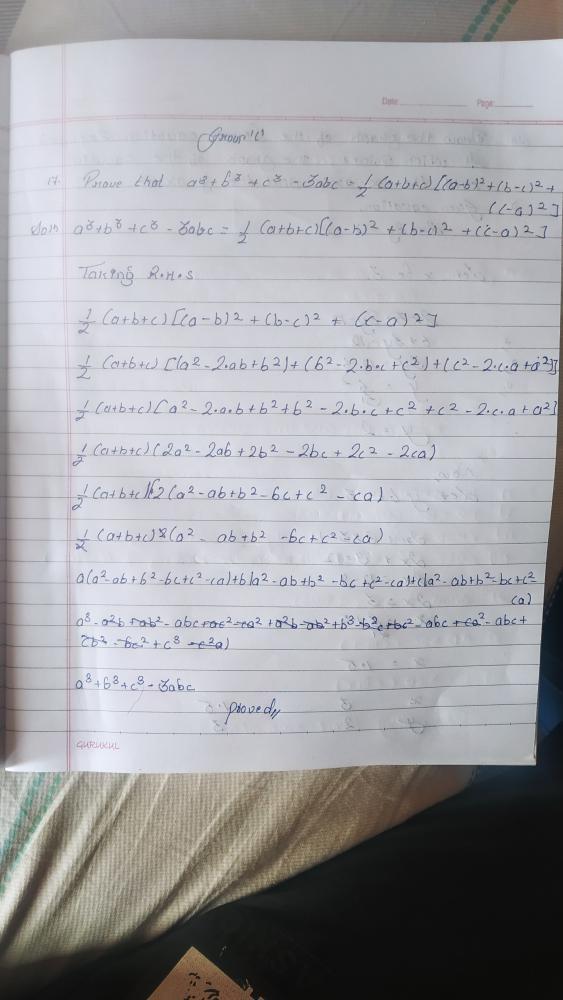 Date: Page:
Group 'C'
17. Prove that a³+b³+c³-3abc = 1/2 (a+b+c)[(a-b)²+(b-c)²+
(c-a)²]
Soln a³+b³+c³-3abc = 1/2 (a+b+c)[(a-b)²+(b-c)²+(c-a)²]
Taking R.H.S
1/2 (a+b+c)[(a-b)²+(b-c)²+(c-a)²]
1/2 (a+b+c)[(a²-2·ab+b²)+(b²-2·b·c+c²)+(c²-2·c·a+a²)]
1/2 (a+b+c)[a²-2·a·b+b²+b²-2·b·c+c²+c²-2·c·a+a²]
1/2 (a+b+c)(2a²-2ab+2b²-2bc+2c²-2ca)
1/2 (a+b+c)×2(a²-ab+b²-bc+c²-ca)
1/2 (a+b+c)×2(a²-ab+b²-bc+c²-ca)
a(a²-ab+b²-bc+c²-ca)+b(a²-ab+b²-bc+c²-ca)+c(a²-ab+b²-bc+c²
ca)
a³-a²b+ab²-abc+ac²-ca²+a²b-ab²+b³-b²c+bc²-abc+ca²-abc+
cb²-bc²+c³-c²a)
a³+b³+c³-3abc
proved,,
GURUKUL